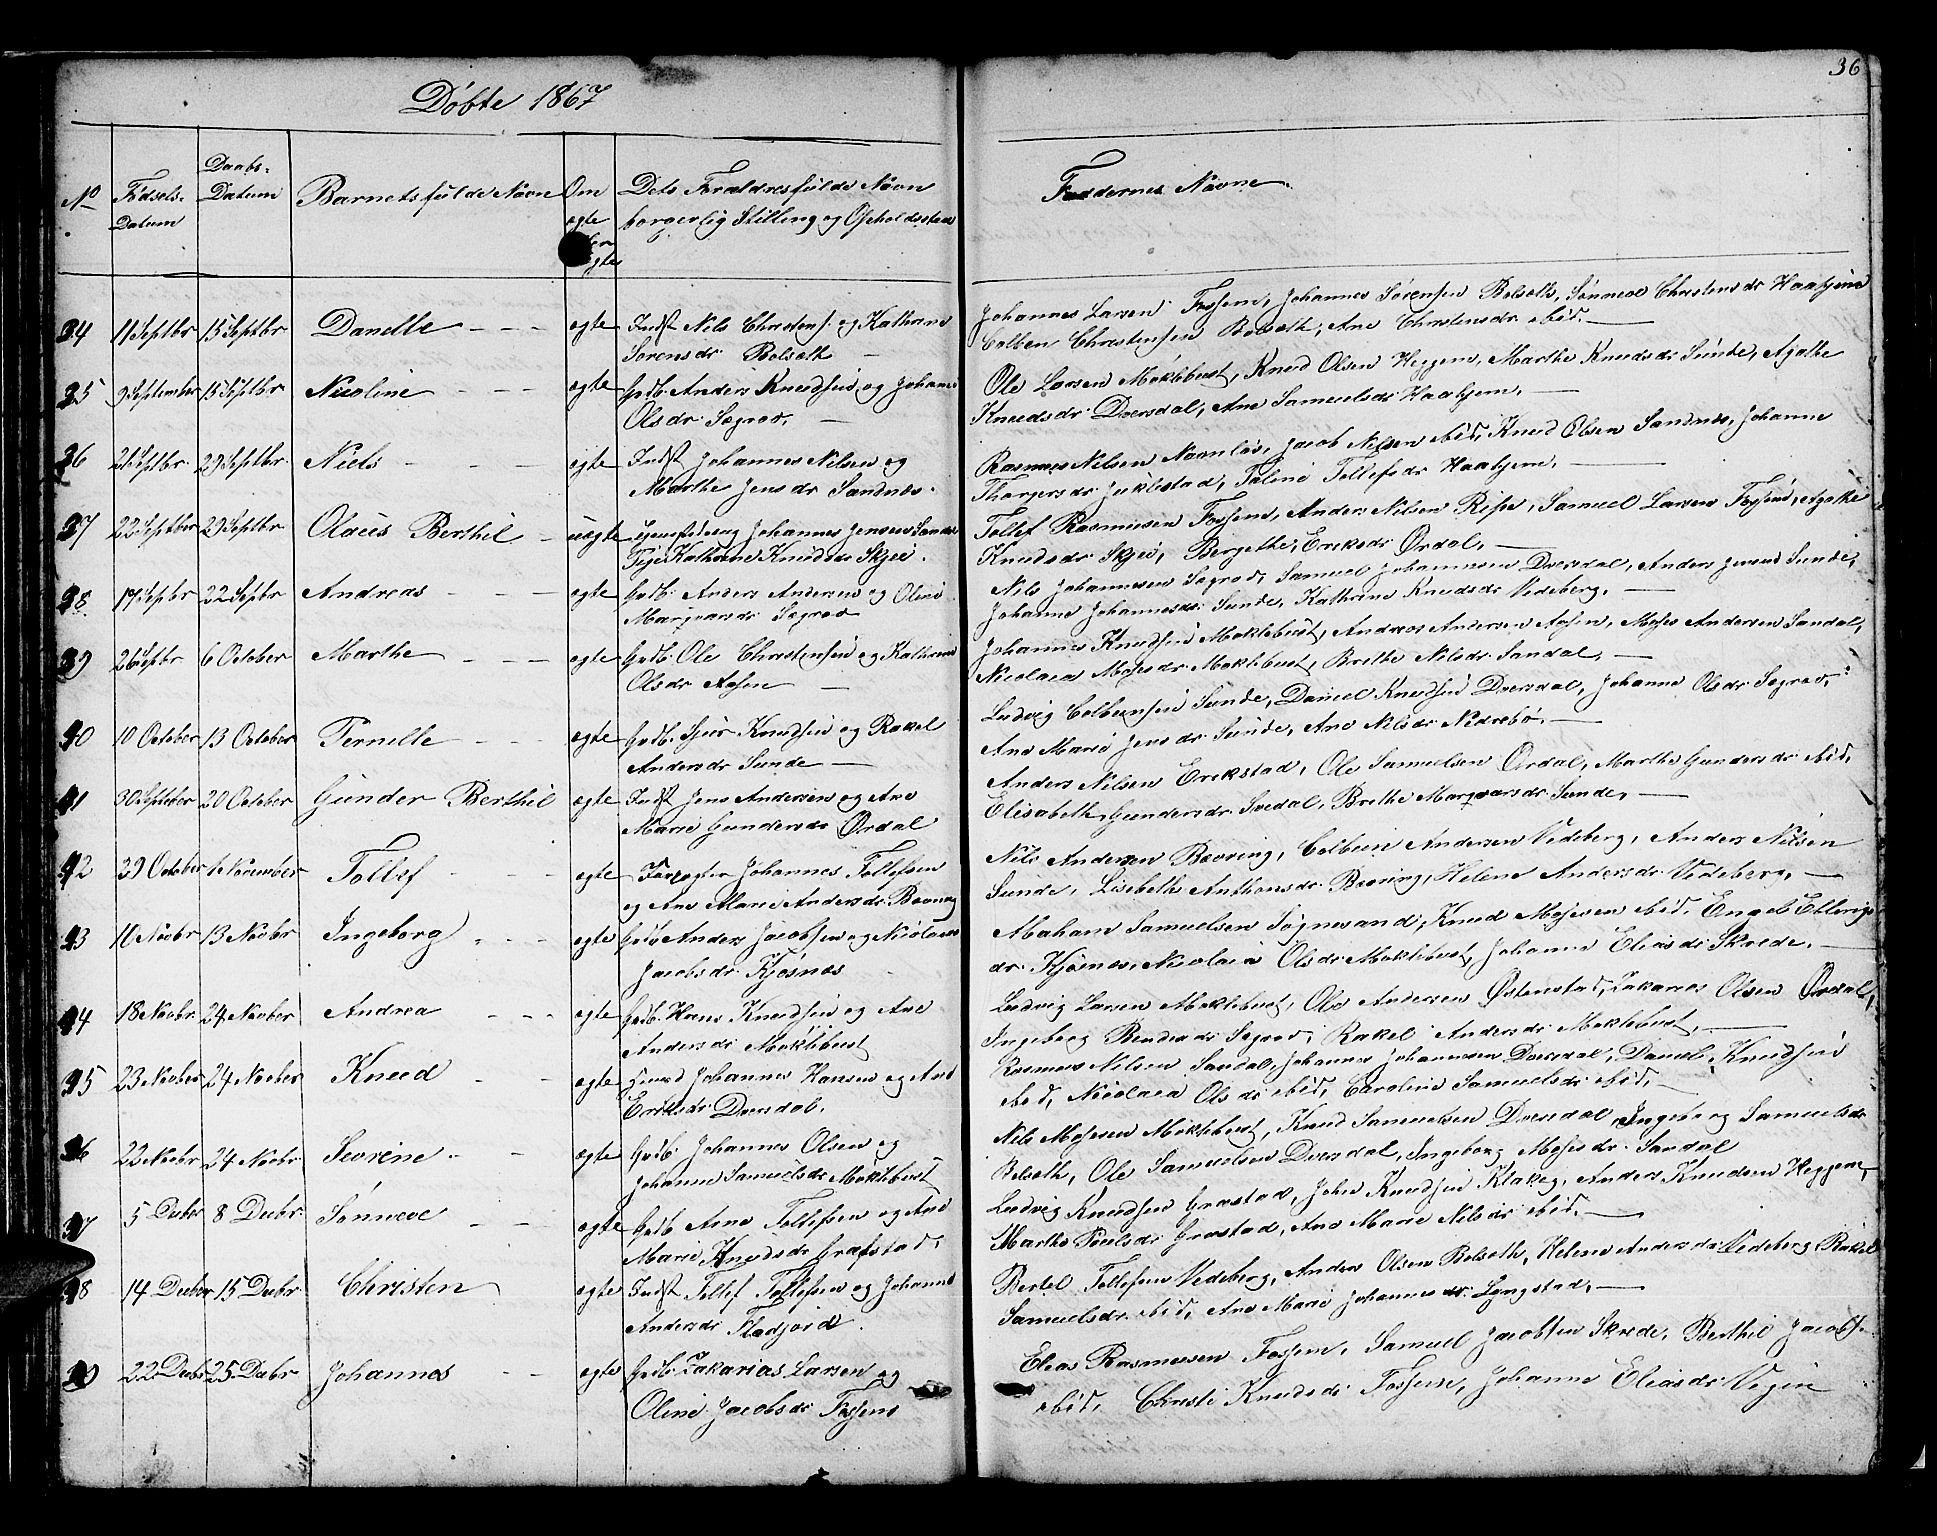 36
Döbte 1867
No Födsels-Datum Daabs-Datum Barnets fulde Navn Om ægte eller uægte Dets Forældres fulde Navn borgerlig Stilling og Opholdssted
Faddernes Navne
34 11 Septbr 15 Septbr Danelle ægte Indst Nils Christens. og Kathrine
Sörensdr Bolsæth
Johannes Larsen Fossem, Johannes Sörensen Bolseth, Sönneve Christensdr Haahjem
Colben Christensen Bolsæth, Ane Christensdr ibid.
35 9 September 15 Septbr Nicoline ægte Grdb. Anders Knudsen og Johanne
Olsdr. Sægrov.
Ole Larsen Möklebust, Knud Olsen Heggem, Marthe Knudsdr Sunde, Agathe
Knudsdr Dversdal, Ane Samuelsdr Haahjem.
36 21 Septbr. 29 Septbr. Niels ægte Indst Johannes Nilsen og
Marthe Jensdr Sandnæs.
Rasmus Nilsen Navnlös, Jacob Nilsen ibid, Knud Olsen Sandnæs, Johanne
Thorgersdr Juklestad, Taline Tollefsdr Haahjem.
37 22 Septber 29 Septbr Olaus Berthil uægte Johannes Jensen Sande
Pige Kathrine Knudsdr Skjei.
Tollef Rasmussen Fossem, Anders Nilsen Ripe, Samuel Larsen Fossem, Agathe
Knudsdr Skjei, Bergethe Eriksdr Ördal.
38 17 Septbr 22 Septbr Andreas ægte Grdb. Anders Andersen og Oline
Margvarsdr Sægrov
Nils Johannesen Sægrov, Samuel Johannesen Dversdal, Anders Jensen Sunde,
Johanne Johannesdr Sunde, Kathrine Knudsdr Vedeberg.
39 26 Septbr 6 October Marthe ægte Grdb. Ole Christensen og Kathrine
Olsdr Aasen
Johannes Knudsen Möklebust, Andreas Andersen Aasen, Moses Andersen Sandal,
Nicolaia Mosesdr Möklebust, Brithe Nilsdr Sandal.
40 10 October 13 October Pernille ægte Grdb. Sjur Knudsen og Rakel
Andersdr Sunde
Ludvig Colbensen Sunde, Daniel Knudsen Dversdal, Johanne Olsdr Sægrov,
Ane Marie Jensdr Sunde, Ane Nilsdr Nedrebö.
41 30 September 20 October Gunder Berthil ægte Indst Jens Andersen og Ane
Marie Gundersdr Ördal
Anders Nilsen Erikstad, Ole Samuelsen Ördal, Marthe Gundersdr ibid,
Elisabeth Gundersdr Svedal, Brithe Margvarsdr Sunde.
42 29 October 1 November Tollef ægte Johannes Tollefsen
og Ane Marie Andersdr. Bævring
Nils Andersen Bævring, Colbein Andersen Vedeberg, Anders Nilsen
Sunde, Lisebeth Anthonsdr. Bævring, Helene Andersdr. Vedeberg.
43 11 Novbr 13 Novbr Ingeborg ægte Grdb Anders Jacobsen og Nicolaia
Jacobsdr. Kjösnæs
Abraham Samuelsen Sögnesand, Knud Mosesen ibid. Engel Ellings
dr. Kjösnes, Nicolaia Olsdr. Möklebust, Johanne Eliasdr Skrede.
44 18 Novbr. 24 November Andrea ægte Grdb. Hans Knudsen og Ane
Andersdr Möklebust
Ludvig Larsen Möklebust, Ole Andersen Östenstad, Zakarias Olsen Ördal,
Ingeborg Sægrov, Rakel Andersdr Möklebust.
45 23 November 24 November Knud ægte Johannes Hansen og Ane
Eriksdr Dversdal.
Rasmus Nilsen Sandal, Johannes Johannesen Dversdal, Daniel Knudsen
ibid, Nicolaia Olsdr ibid, Caroline Samuelsdr ibid.
46 22 Novbr 24 Novbr Severine ægte Grdb. Johannes Olsen og
Johanne Samuelsdr Möklebust
Nils Mosesen Möklebust, Knud Samuelsen Dversdal, Ingeborg Samuelsdr
Bolseth, Ole Samuelsen Dversdal, Ingeborg Mosesdr. Sandal
47 5 Decbr 8 Decbr. Sönneve ægte Grdb Arne Tollefsen og Ane
Marie Knudsdr Grafstad.
Ludvig Knudsen Grastad, John Knudsen Klakeg, Anders Knudsen Heggem,
Marthe Poulsdr Grastad, Ane Marie Nilsdr ibid.
48 14 Decber 15 Decbr Christen ægte Indst Tollef Tollefsen og Johanne
Andersdr Fladjord.
Bertel Tollefsen Vedeberg, Anders Olsen Bolseth, Helene Andersdr: Vedeberg, Rakel
Samuelsdr. ibid, Ane Marie Johannesdr. Lyngstad.
22 Decbr 25 Decbr Johannes ægte Grdb. Zakarias Larsen og
Oline Jacobsdr Fossem
Elias Rasmussen Fossem, Samuel Jacobsen Skrede, Berthil Jacobs.
ibid, Christi Knudsdr. Fossem, Johanne Eliasdr Vegin